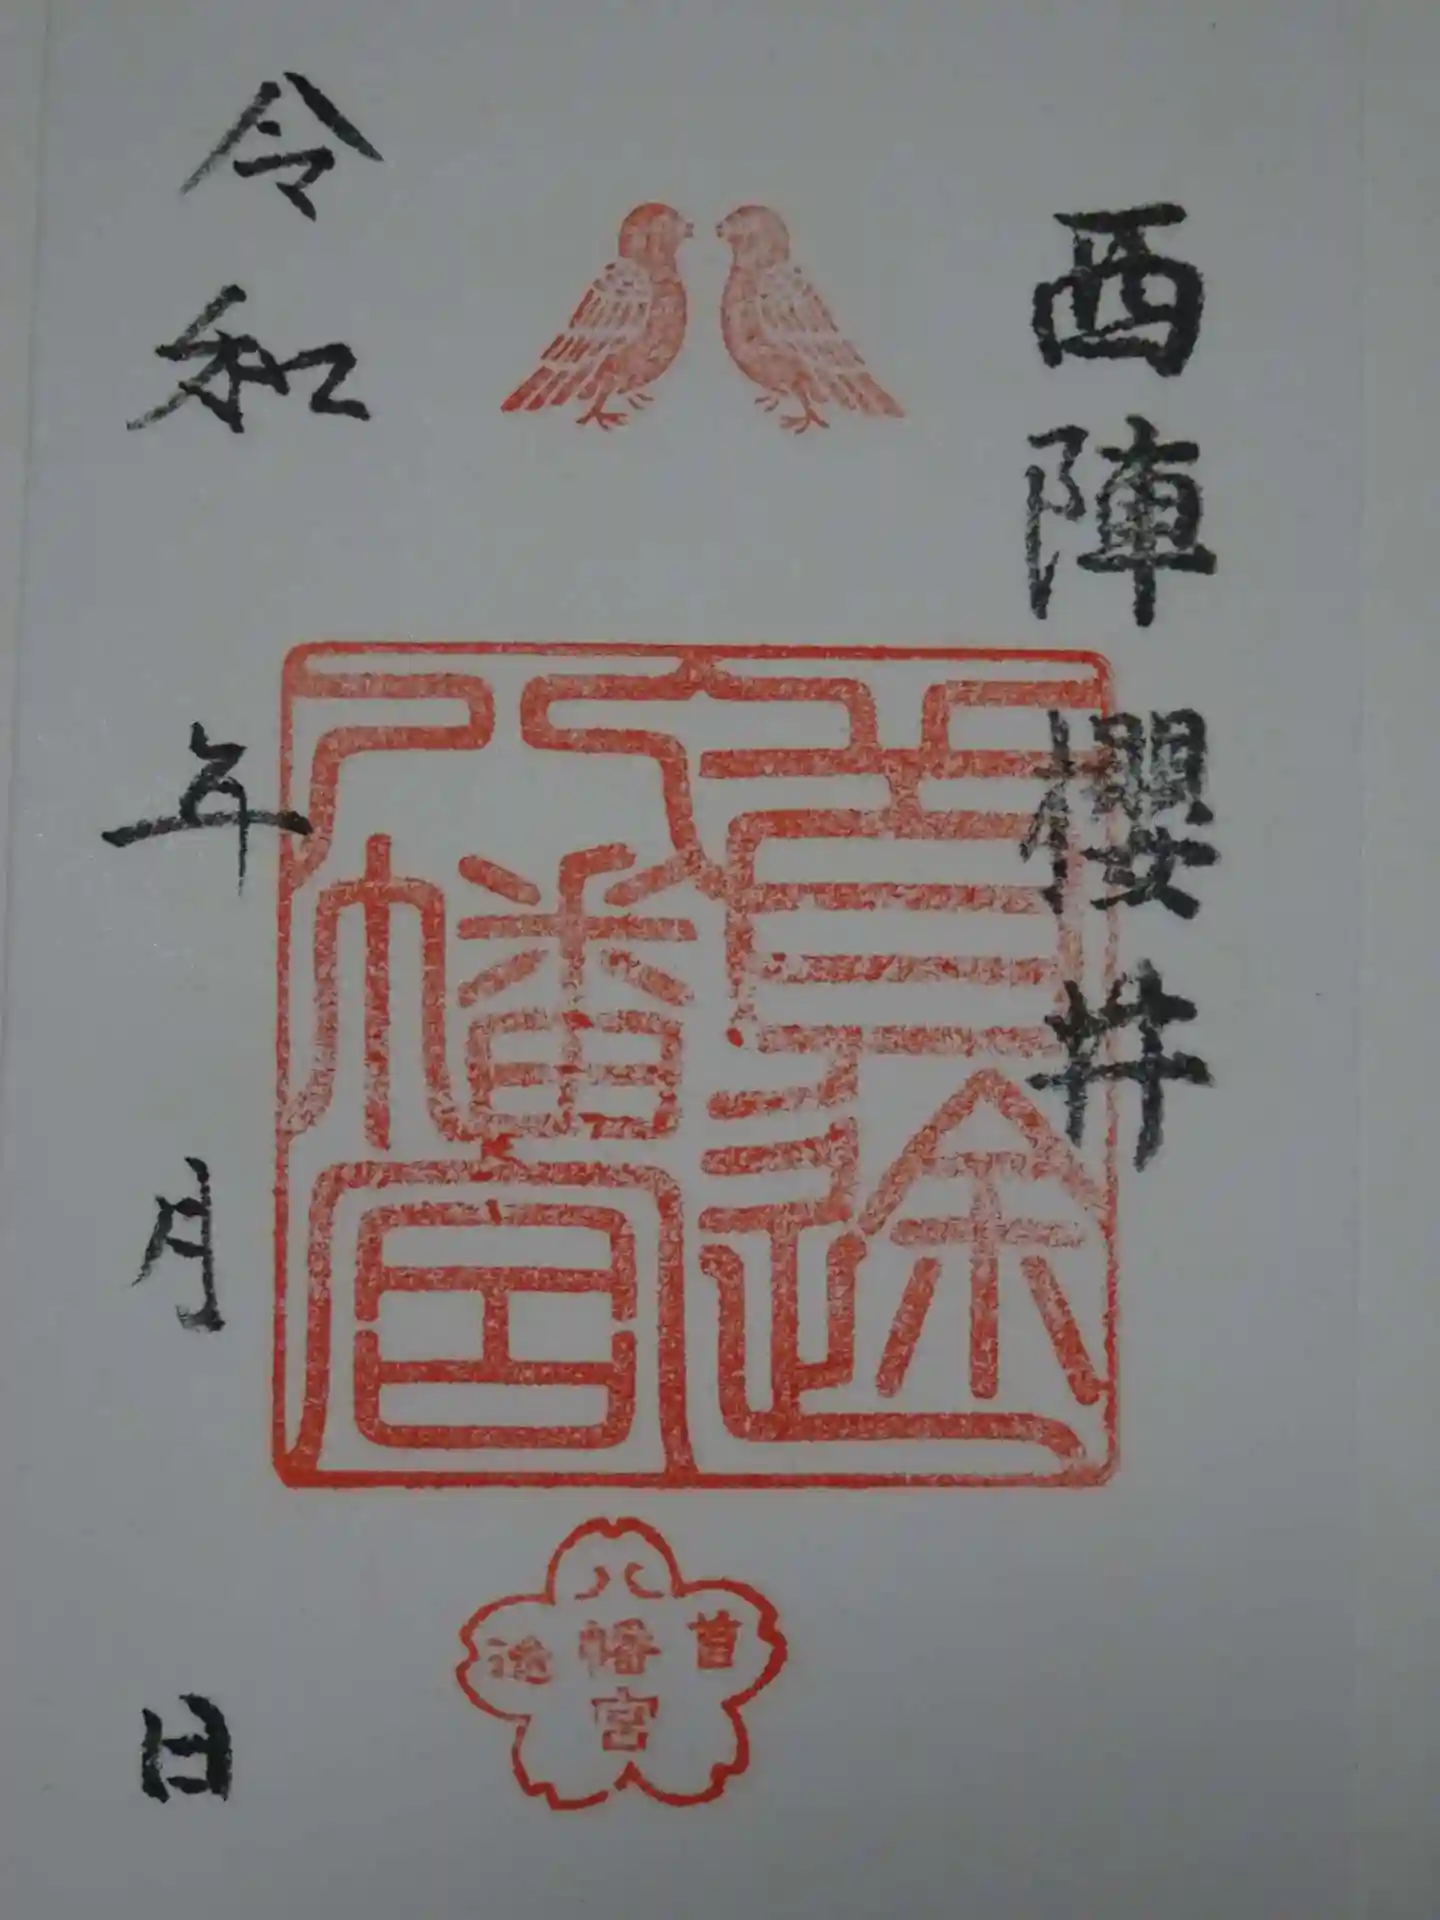 西陣 櫻井
首途
八幡宮
令和 年 月 日
首途
八幡宮